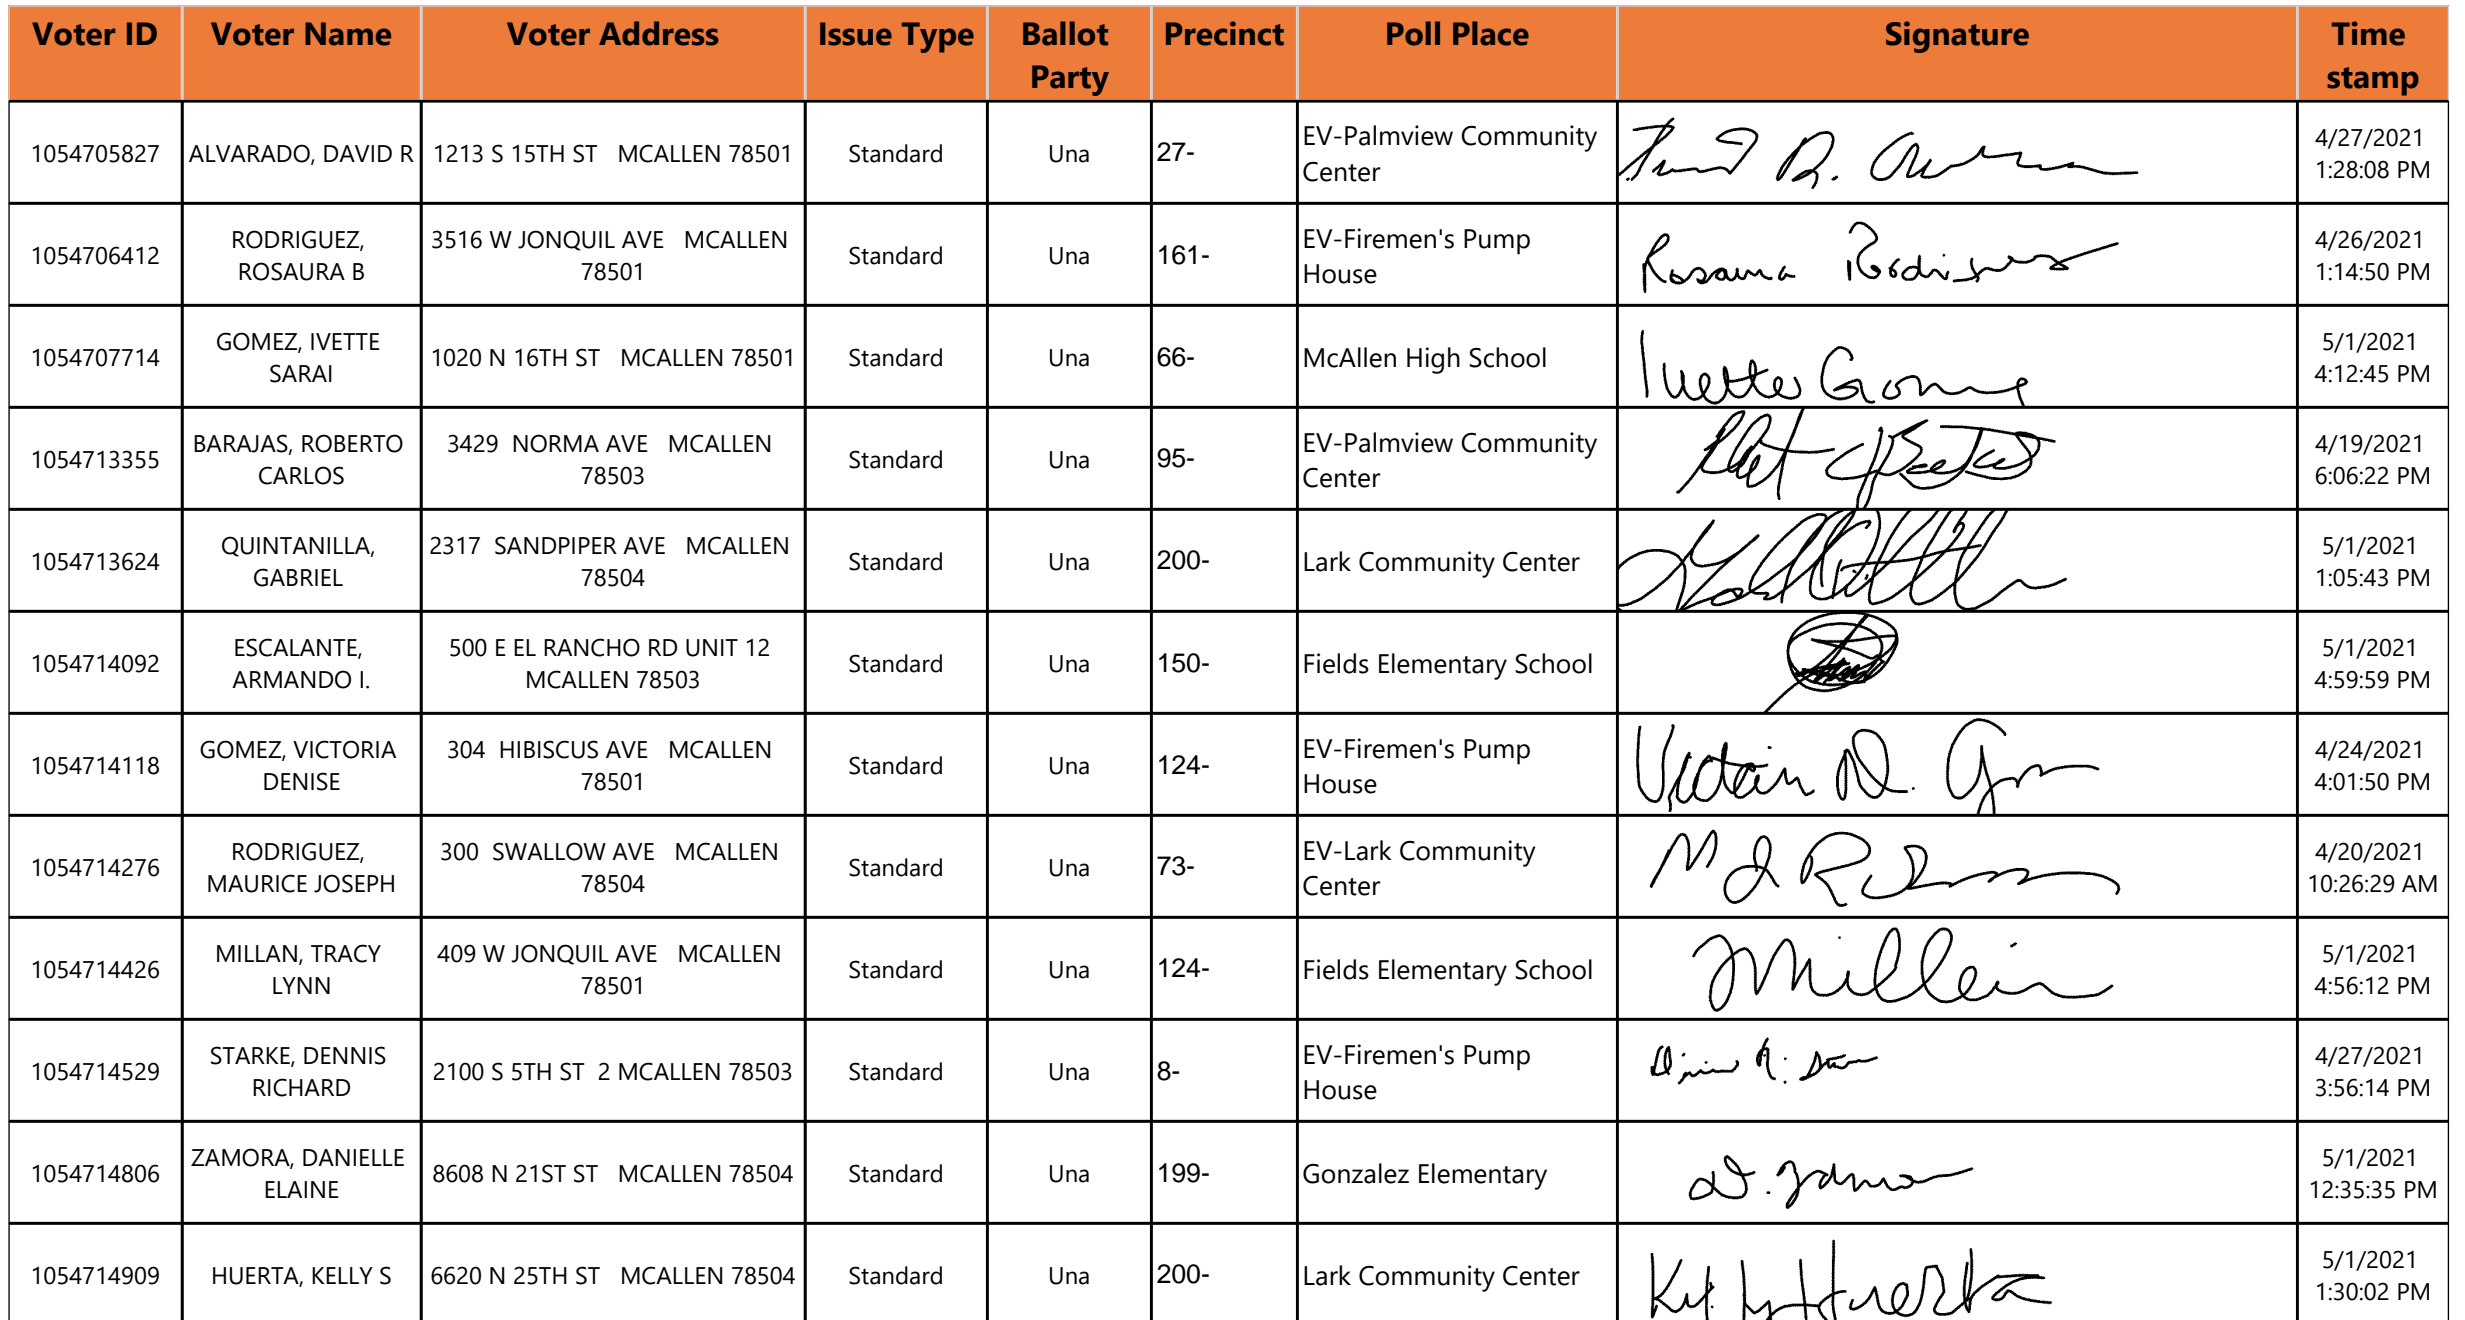 Voter ID Voter Name Voter Address Issue Type Ballot Party Precinct Poll Place Signature Time stamp
1054705827 ALVARADO, DAVID R 1213 S 15TH ST MCALLEN 78501 Standard Una 27- EV-Palmview Community Center 4/27/2021 1:28:08 PM
1054706412 RODRIGUEZ, ROSAURA B 3516 W JONQUIL AVE MCALLEN 78501 Standard Una 161- EV-Firemen's Pump House Rosaura Rodriguez 4/26/2021 1:14:50 PM
1054707714 GOMEZ, IVETTE SARAI 1020 N 16TH ST MCALLEN 78501 Standard Una 66- McAllen High School Ivette Gomez 5/1/2021 4:12:45 PM
1054713355 BARAJAS, ROBERTO CARLOS 3429 NORMA AVE MCALLEN 78503 Standard Una 95- EV-Palmview Community Center 4/19/2021 6:06:22 PM
1054713624 QUINTANILLA, GABRIEL 2317 SANDPIPER AVE MCALLEN 78504 Standard Una 200- Lark Community Center 5/1/2021 1:05:43 PM
1054714092 ESCALANTE, ARMANDO I. 500 E EL RANCHO RD UNIT 12 MCALLEN 78503 Standard Una 150- Fields Elementary School 5/1/2021 4:59:59 PM
1054714118 GOMEZ, VICTORIA DENISE 304 HIBISCUS AVE MCALLEN 78501 Standard Una 124- EV-Firemen's Pump House 4/24/2021 4:01:50 PM
1054714276 RODRIGUEZ, MAURICE JOSEPH 300 SWALLOW AVE MCALLEN 78504 Standard Una 73- EV-Lark Community Center 4/20/2021 10:26:29 AM
1054714426 MILLAN, TRACY LYNN 409 W JONQUIL AVE MCALLEN 78501 Standard Una 124- Fields Elementary School Millan 5/1/2021 4:56:12 PM
1054714529 STARKE, DENNIS RICHARD 2100 S 5TH ST 2 MCALLEN 78503 Standard Una 8- EV-Firemen's Pump House 4/27/2021 3:56:14 PM
1054714806 ZAMORA, DANIELLE ELAINE 8608 N 21ST ST MCALLEN 78504 Standard Una 199- Gonzalez Elementary D. Zamora 5/1/2021 12:35:35 PM
1054714909 HUERTA, KELLY S 6620 N 25TH ST MCALLEN 78504 Standard Una 200- Lark Community Center Huerta 5/1/2021 1:30:02 PM